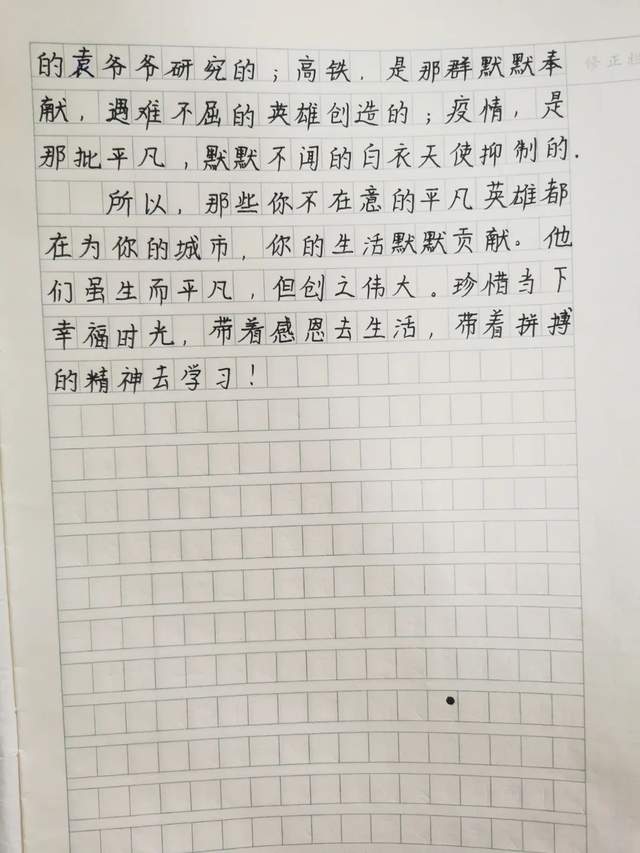 修正栏
的袁爷爷研究的；高铁，是那群默默奉
献，遇难不屈的英雄创造的；疫情，是
那批平凡，默默不闻的白衣天使抑制的.
所以，那些你不在意的平凡英雄都
在为你的城市，你的生活默默贡献。他
们虽生而平凡，但创立伟大。珍惜当下
幸福时光，带着感恩去生活，带着拼搏
的精神去学习！